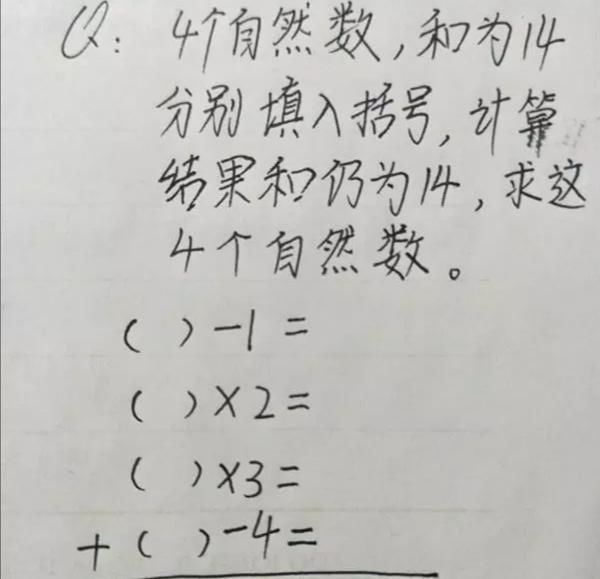 Q: 4个自然数,和为14
分别填入括号,计算
结果和仍为14,求这
4个自然数。
( )-1=
( )×2=
( )×3=
+( )-4=